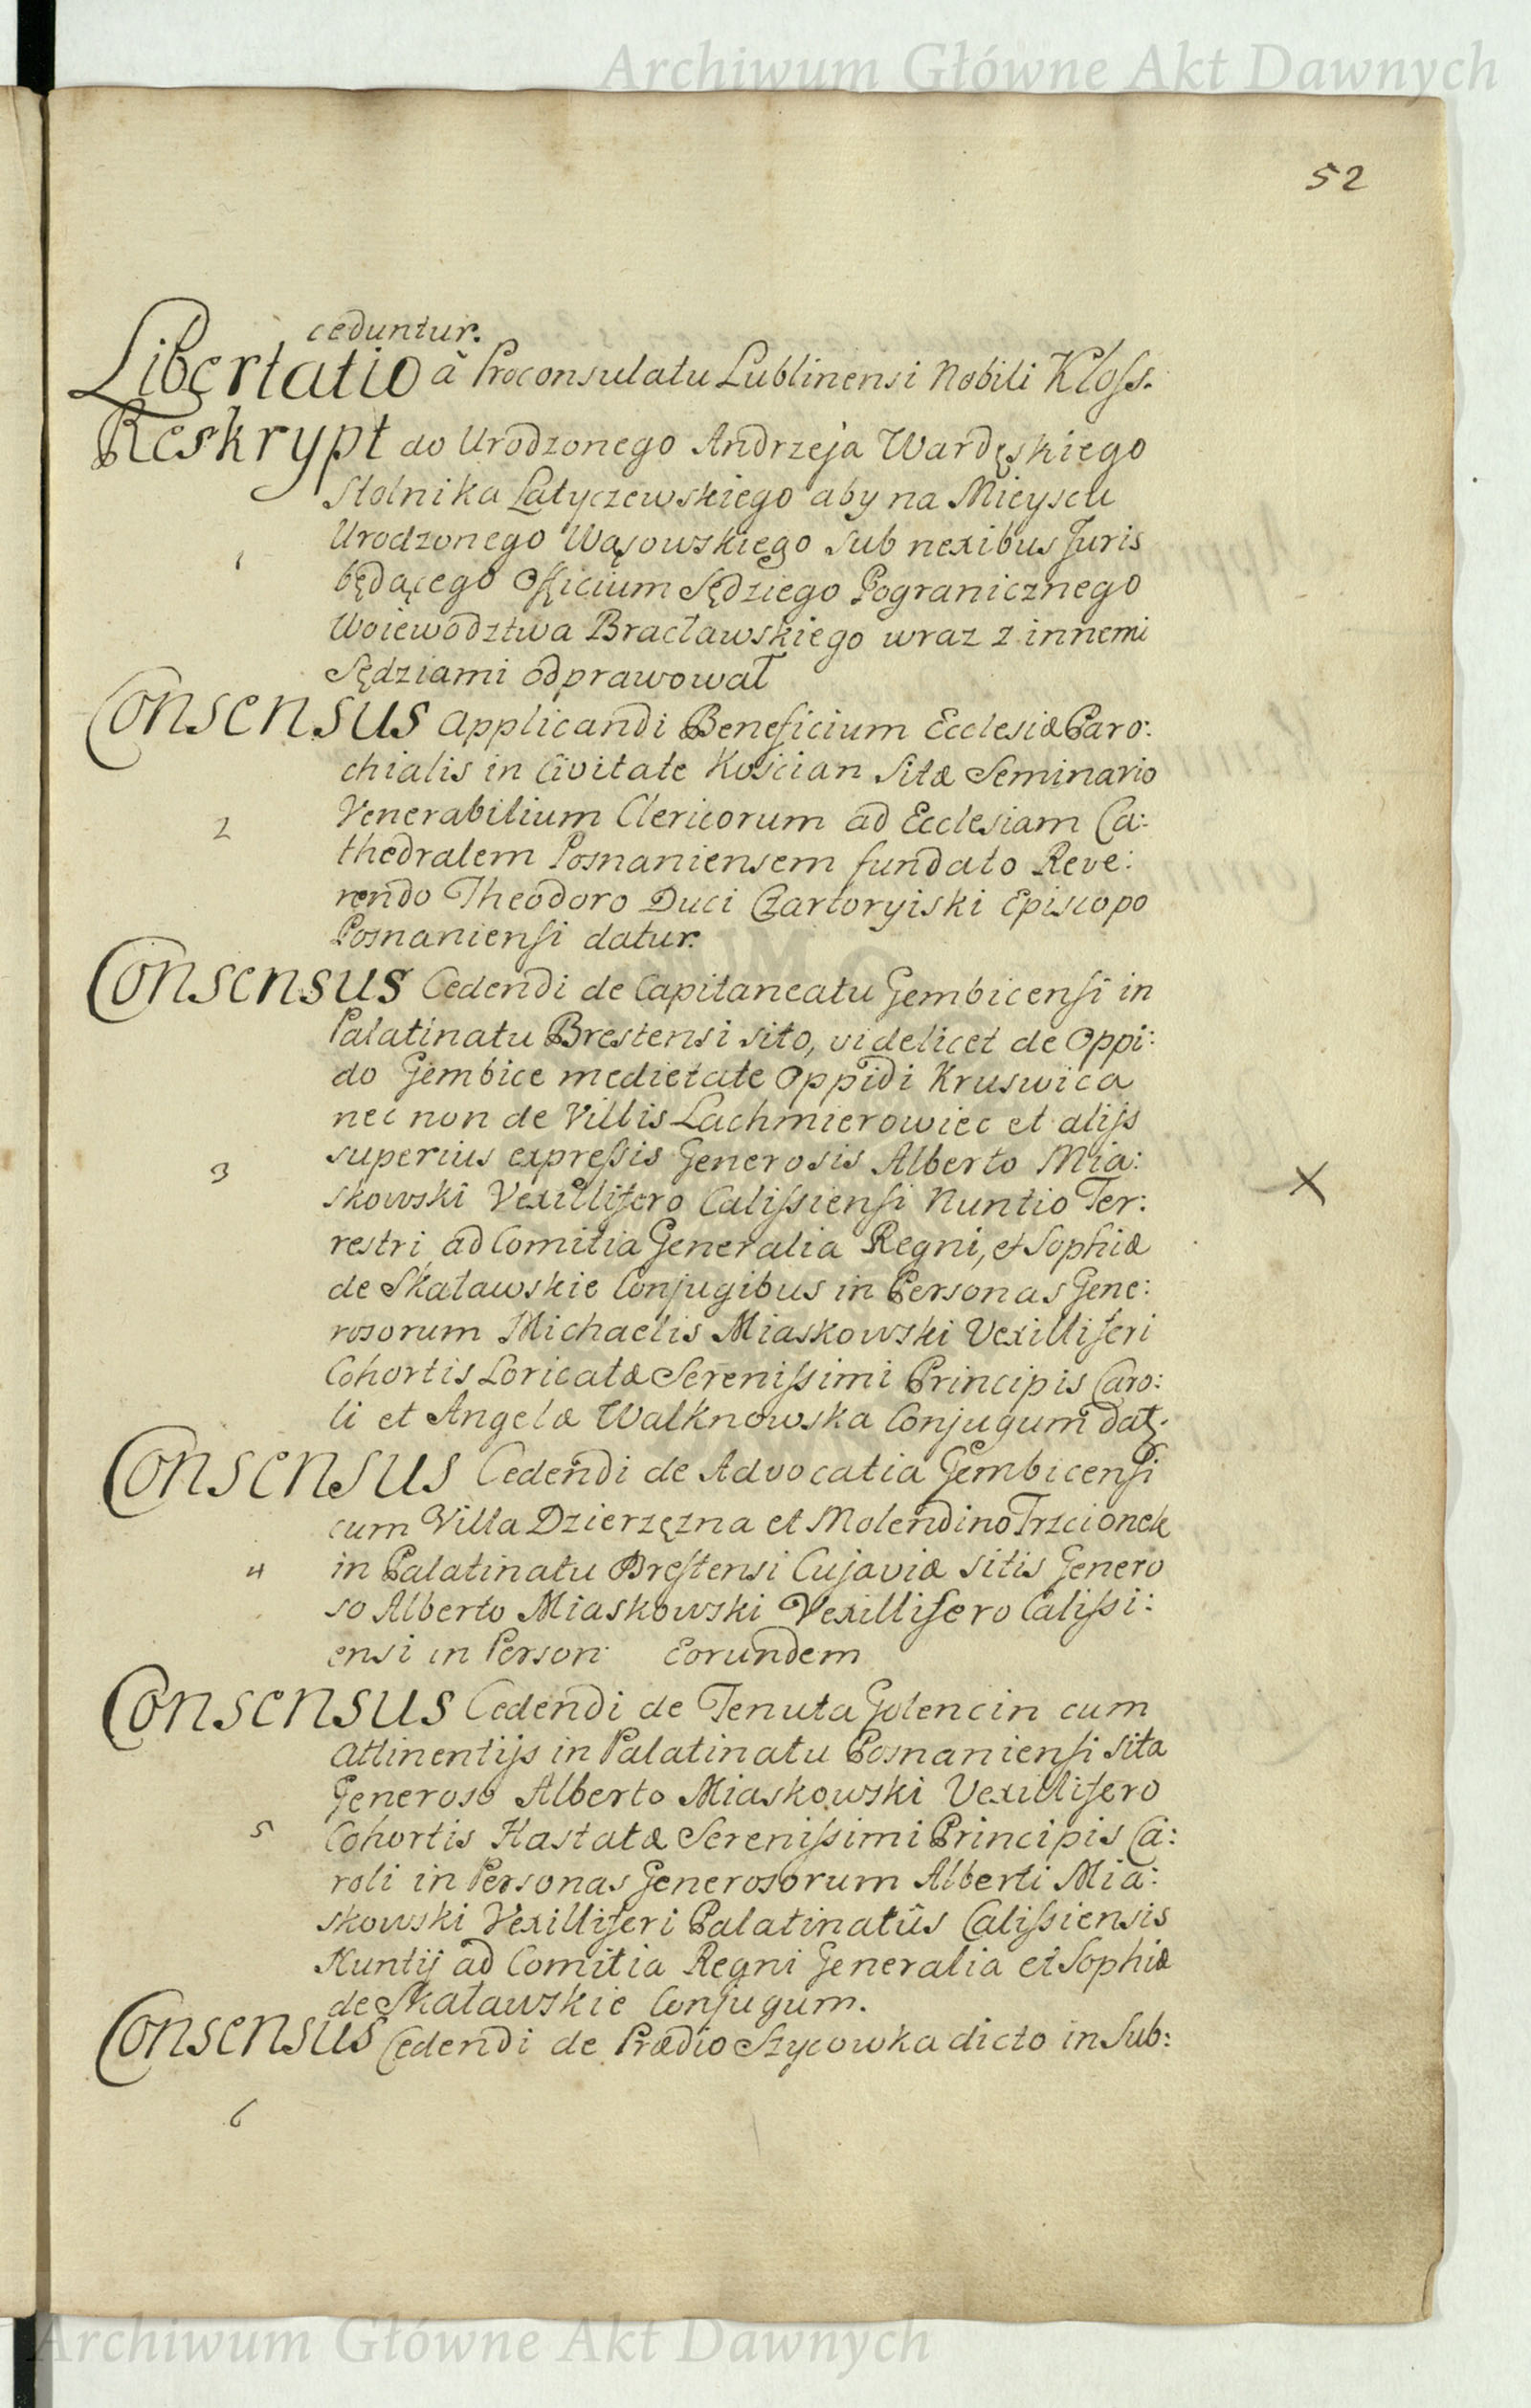 Archiwum Główne Akt Dawnych
52
ceduntur.
Libertatio à Proconsulatu Lublinensi Nobili Kloss.
Reskrypt do Urodzonego Andrzeja Wardęskiego
Stolnika Latyczewskiego aby na Mieyscu
Urodzonego Wąsowskiego sub nexibus Juris
1
będącego Officium Sędziego Pogranicznego
Woiewodztwa Bracławskiego wraz z innemi
Sędziami odprawował
Consensus applicandi Beneficium Ecclesiæ Paro:
chialis in Civitate Kościan Sitæ Seminario
2
Venerabilium Clericorum ad Ecclesiam Ca:
thedralem Posnaniensem fundato Reve:
rendo Theodoro Duci Czartoryiski Episcopo
Posnaniensi datur.
Consensus Cedendi de Capitaneatu Gembicensi in
Palatinatu Brestensi sito, videlicet de Oppi:
do Gembice medietate Oppidi Kruswica
nec non de Villis Lachmierowiec et alijs
3
superius expressis Generosis Alberto Mia:
X
skowski Vexillifero Calissiensi Nuntio Ter:
restri ad Comitia Generalia Regni, et Sophiæ
de Skaławskie Conjugibus in Personas Gene:
rosorum Michaelis Miaskowski Vexilliferi
Cohortis Loricatæ Serenissimi Principis Caro:
li et Angelæ Walknowska Conjugum dat.
Consensus Cedendi de Advocatia Gembicensi
cum Villa Dzierzęzna et Molendino Trzcionek
4
in Palatinatu Brestensi Cujaviæ sitis Genero
so Alberto Miaskowski Vexillifero Calissi:
ensi in Person: Eorundem
Consensus Cedendi de Tenuta Golencin cum
Attinentijs in Palatinatu Posnaniensi sita
Generoso Alberto Miaskowski Vexillifero
5
Cohortis Hastatæ Serenissimi Principis Ca:
roli in Personas Generosorum Alberti Mia:
skowski Vexilliferi Palatinatûs Calissiensis
Nuntij ad Comitia Regni Generalia et Sophiæ
de Skaławskie Conjugum.
Consensus Cedendi de Prædio Szycowka dicto in Sub:
6
Archiwum Główne Akt Dawnych